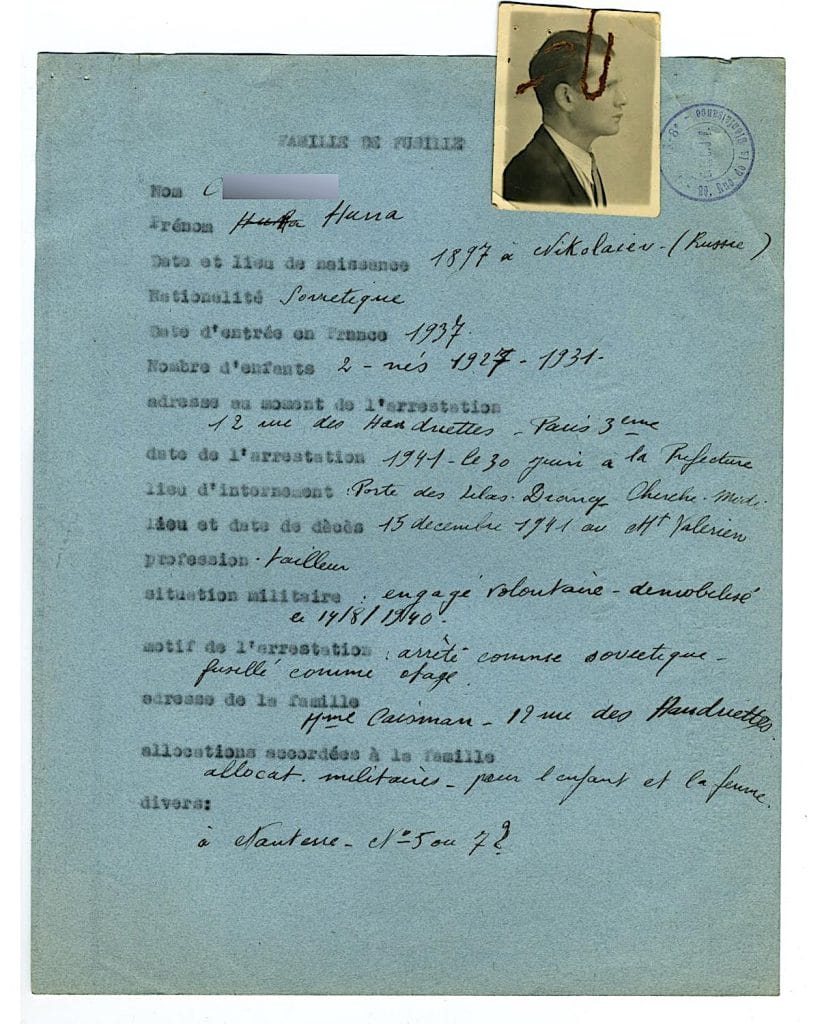 FAMILLE DE FUSILLE
Nom C
Prénom Huna
Date et lieu de naissance 1897 à Nikolaiev - (Russie)
Nationalité Sovietique
Date d'entrée en France 1937.
Nombre d'enfants 2 - nés 1927 - 1931 -
adresse au moment de l'arrestation
12 rue des Haudriettes - Paris 3eme
date de l'arrestation 1941 - le 30 Juin à la Prefecture
lieu d'internement : Porte des Lilas. Drancy Cherche. Midi.
lieu et date de dècès 15 decembre 1941 au Mt Valerien
profession - tailleur
situation militaire : engagé volontaire - demobilisé
le 14/8/1940.
motif de l'arrestation : arrêté comme sovietique -
fusillé comme otage.
adresse de la famille
Mme Caisman - 12 rue des Haudriettes.
allocations accordées à la famille
allocat. militaires - pour l'enfant et la femme.
divers:
à Nanterre - No 5 ou 7?